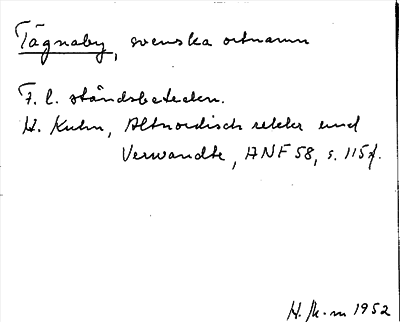 Tägnaby, svenska ortnamn
F. l. ståndsbeteckn.
H. Kuhn, Altnordisch rekkr und
Verwandte, ANF 58, s. 115f.
H. 1952